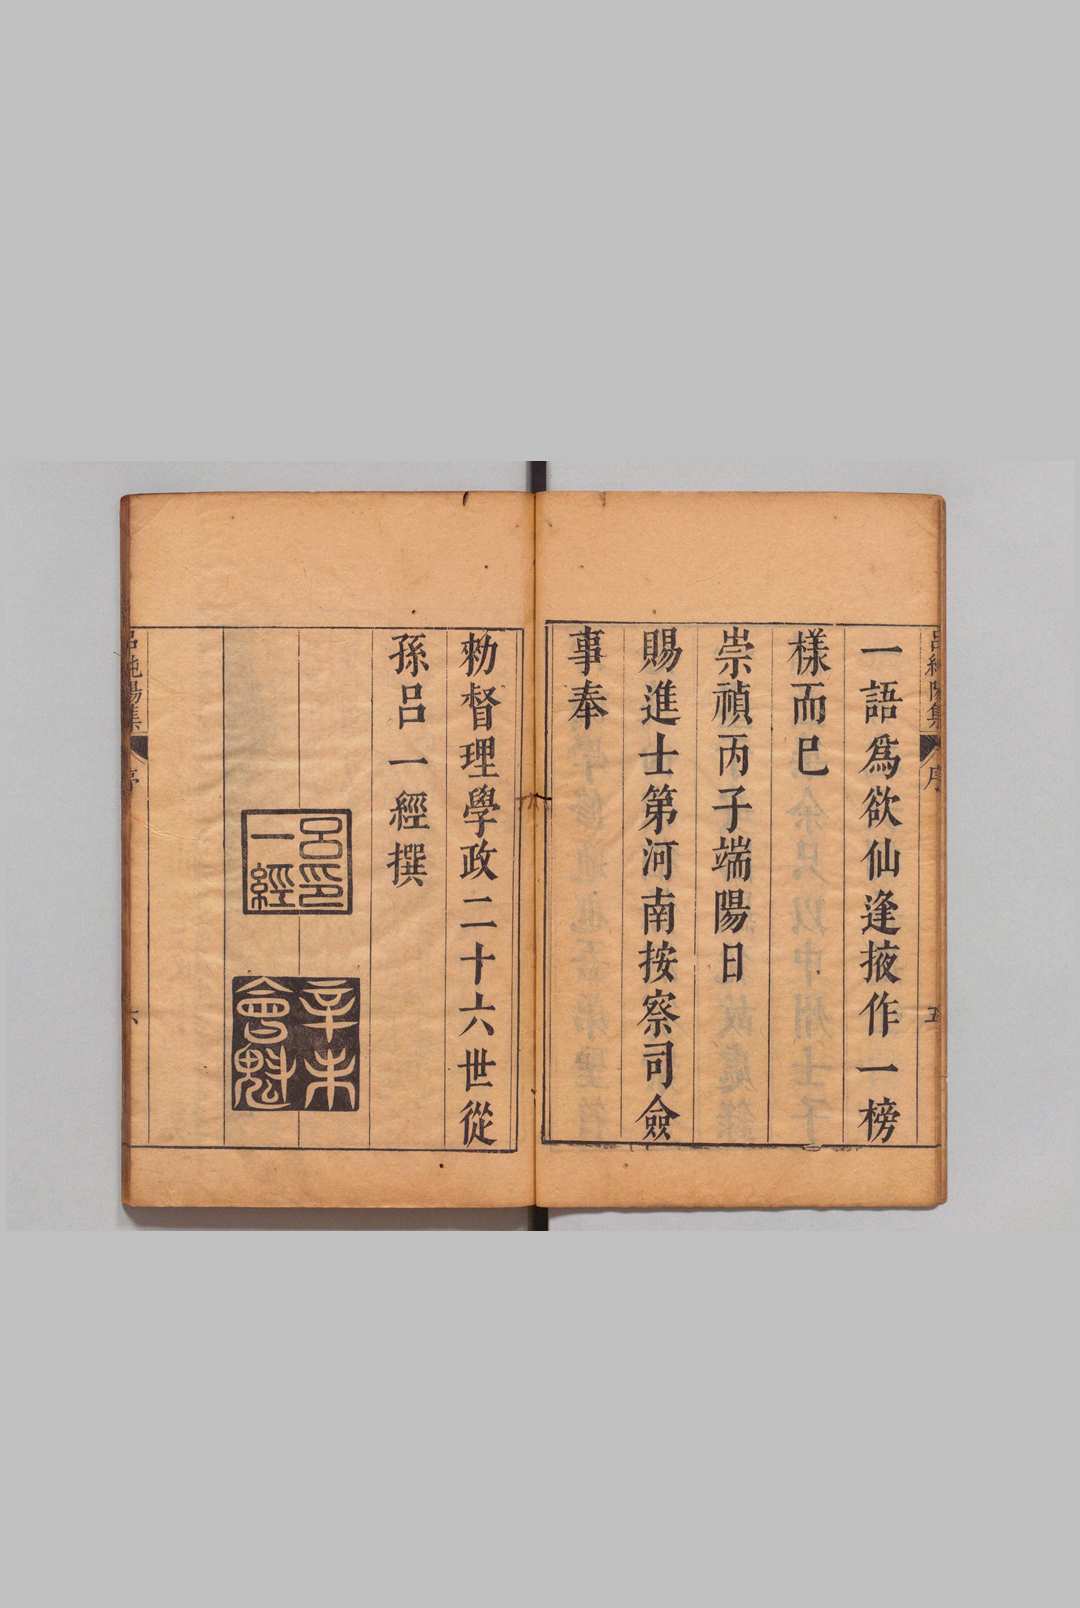 一語爲欲仙逢掖作一榜
樣而已
崇禎丙子端陽日
賜進士第河南按察司僉
事奉
勑督理學政二十六世從
孫呂一經撰
呂印一經
辛未會魁
呂純陽集
序
五
呂純陽集
序
六